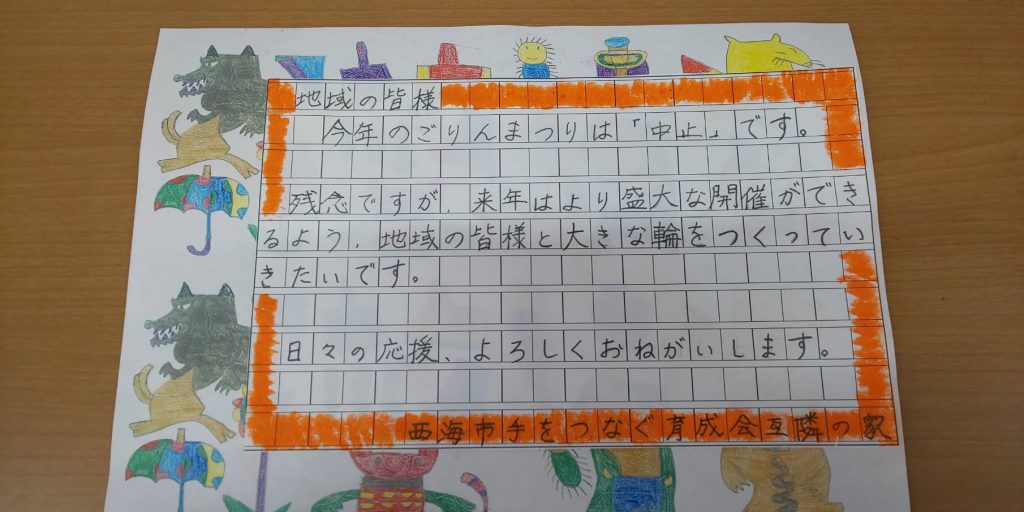 地域の皆様
今年のごりんまつりは「中止」です。
残念ですが、来年はより盛大な開催ができ
るよう、地域の皆様と大きな輪をつくってい
きたいです。
日々の応援、よろしくおねがいします。
西海市手をつなぐ育成会互隣の家